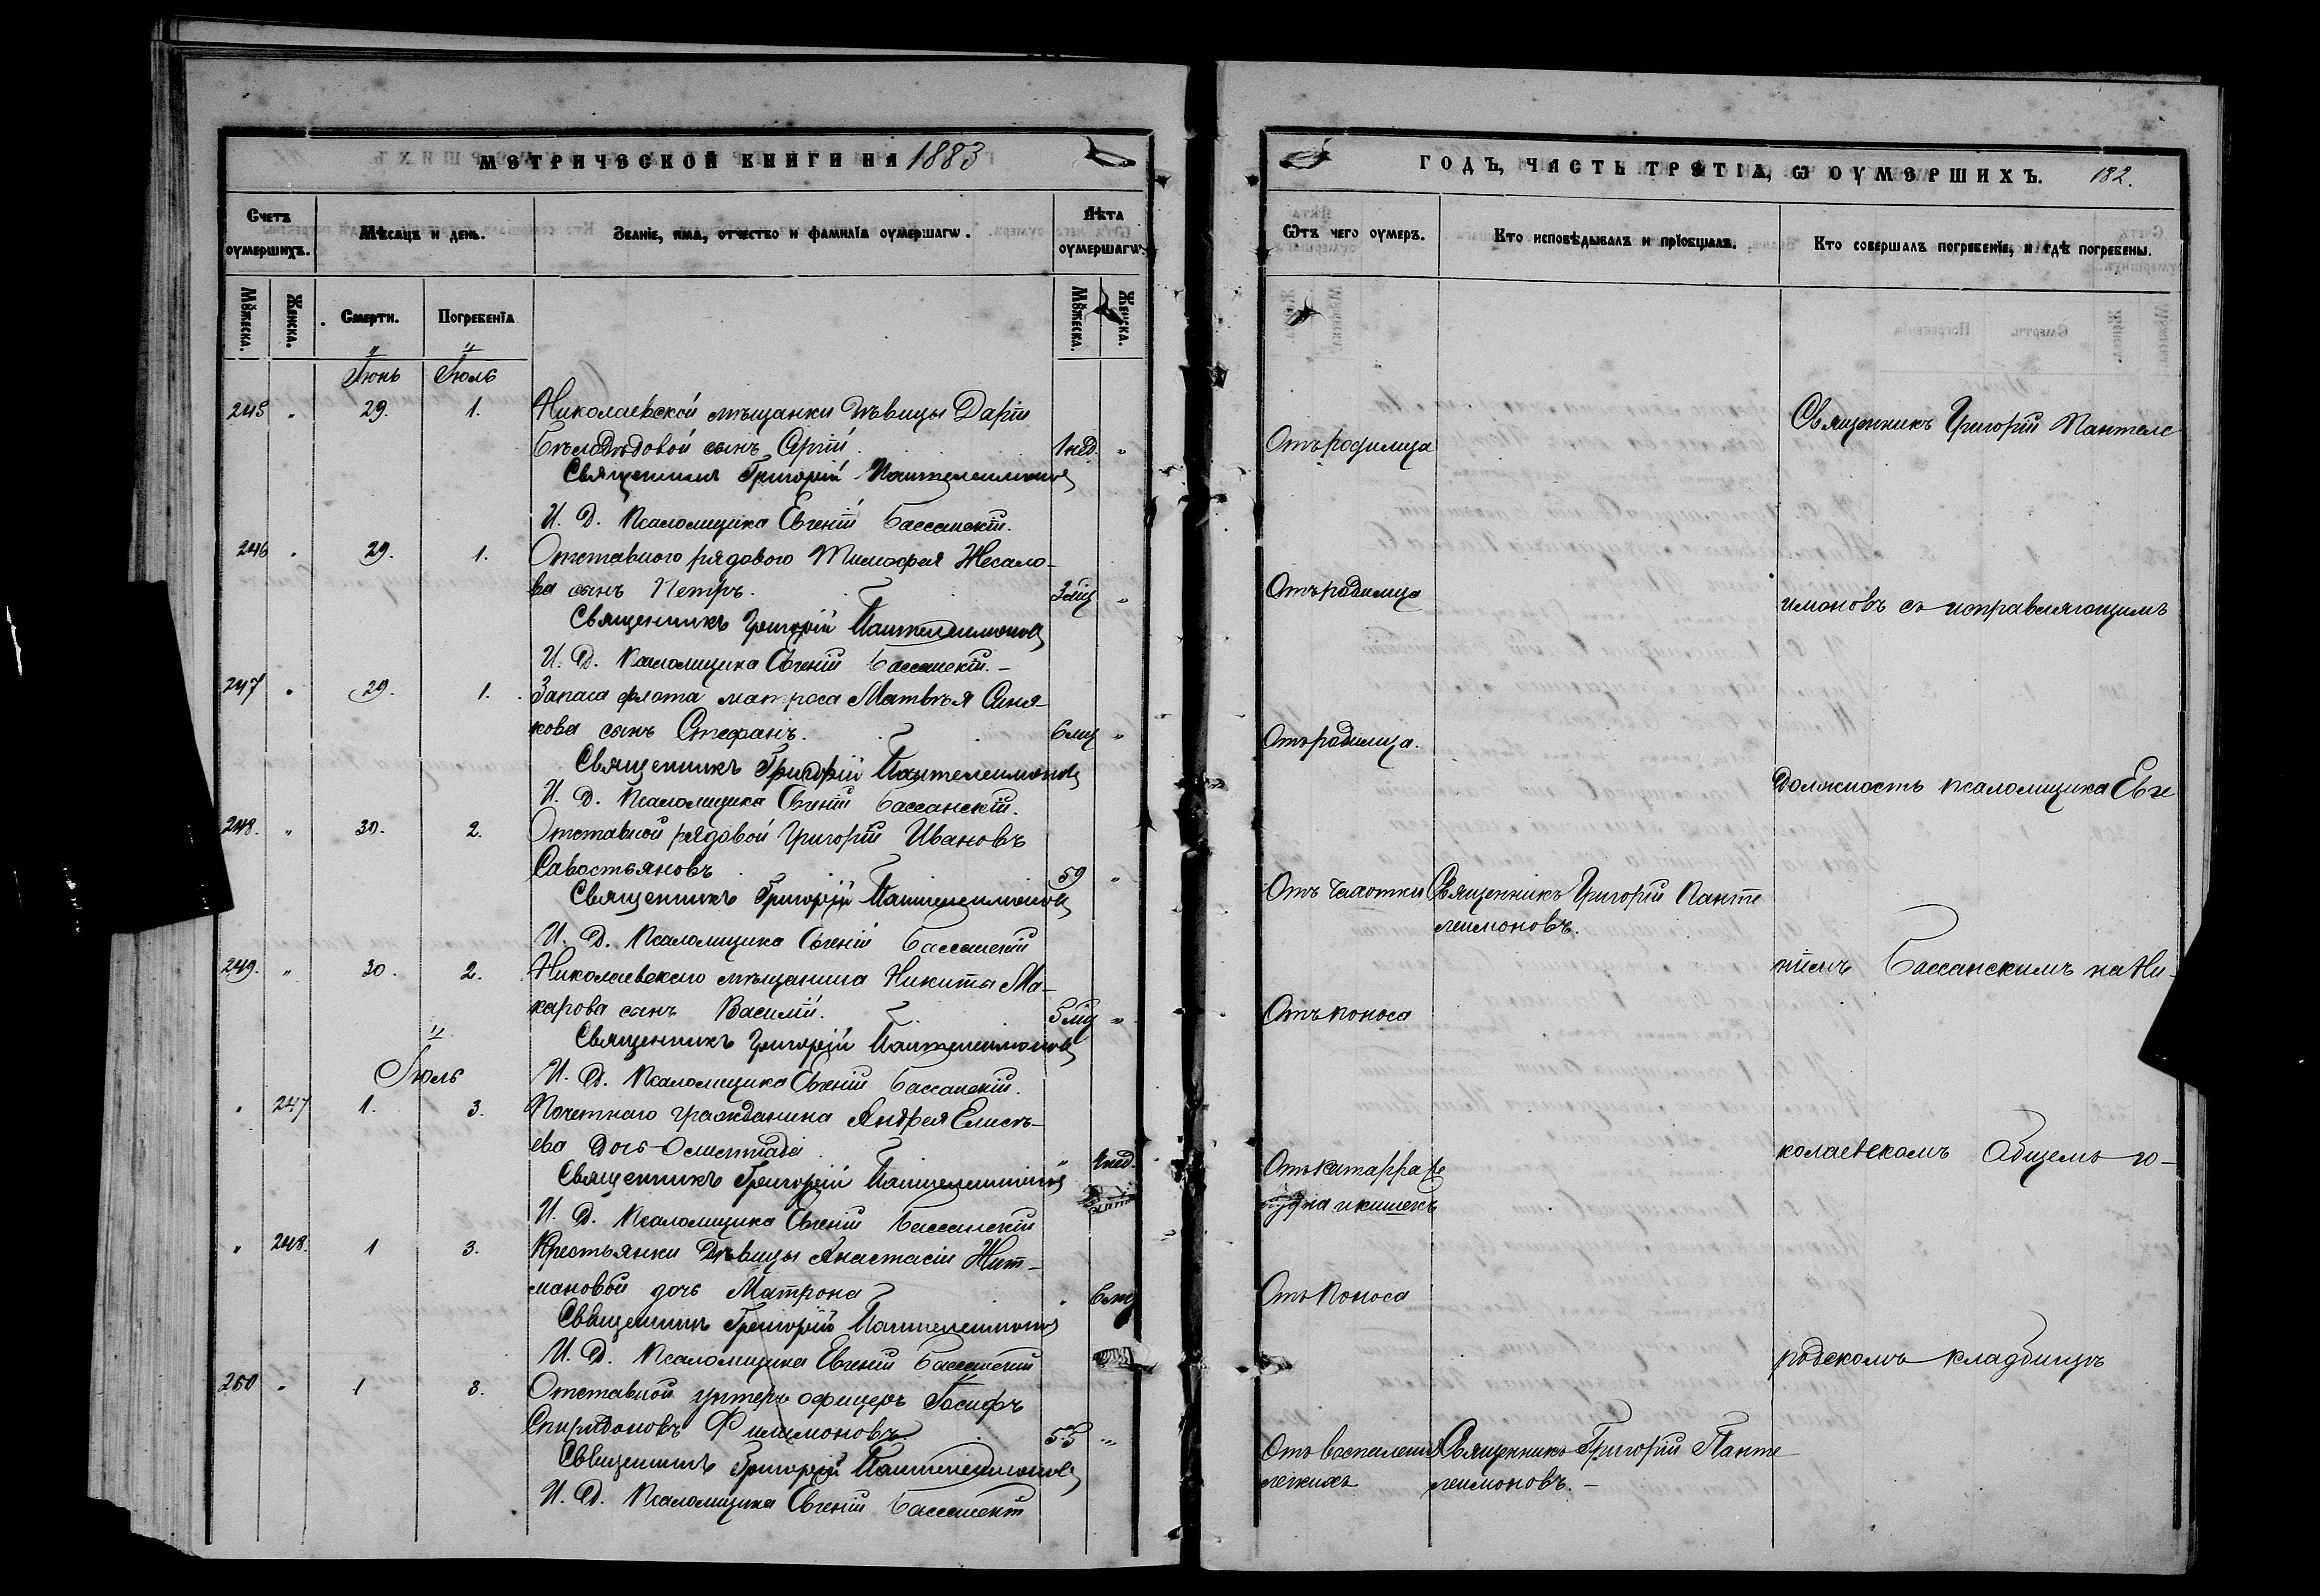 МЕТРИЧЕСКОЙ КНИГИ НА 1883
Счетъ оумершихъ.
Мѣсяцъ и день.
Званіе, имя, отчество и фамиліа оумершагѡ.
Лѣта оумершагѡ.
Мꙋжеска.
Женска.
Смерти.
Погребеніа
Мꙋжеска.
Женска.
Іюнь Іюль
245 " 29. 1. Николаевской мѣщанки дѣвицы Даріи
Бѣлодѣдовой сынъ Сергій. 1 нед. "
Священникъ Григорій Пантелеимоновъ
И. Д. Псаломщика Евгеній Бассанскій.
246 " 29. 1. Отставного рядового Тимофея Жесало-
ва сынъ Петръ. 3 мц "
Священникъ Григорій Пантелеимоновъ
И. Д. Псаломщика Евгеній Бассанскій.-
247 " 29. 1. Запаса флота матроса Матвѣя Синя-
кова сынъ Стефанъ. 6 мц "
Священникъ Григорій Пантелеимоновъ
И. Д. Псаломщика Евгеній Бассанскій.
248. " 30. 2. Отставной рядовой Григорій Ивановъ
Савостьяновъ 59 "
Священникъ Григорій Пантелеимоновъ
И. Д. Псаломщика Евгеній Бассанскій
249. " 30. 2. Николаевскаго мѣщанина Никиты Ма-
карова сынъ Василій. 5 мц "
Священникъ Григорій Пантелеимоновъ
Іюль
И. Д. Псаломщика Евгеній Бассанскій.
" 247 1. 3. Почетнаго гражданина Андрея Елисѣ-
ева дочь Олимпіада " 4 нед.
Священникъ Григорій Пантелеимоновъ
И. Д. Псаломщика Евгеній Бассанскій
" 248. 1 3. Крестьянки дѣвицы Анастасіи Жит-
мановой дочь Матрона " 6 мц
Священникъ Григорій Пантелеимоновъ
И. Д. Псаломщика Евгеній Бассанскій
250 " 1 3. Отставной унтеръ офицеръ Іосифъ
Спиридоновъ Филимоновъ 55 "
Священникъ Григорій Пантелеимоновъ
И. Д. Псаломщика Евгеній Бассанскій
ГОДЪ, ЧАСТЬ ТРЕТІѦ, Ѡ ОУМЕРШИХЪ. 182.
Ѿтъ чего оумеръ.
Кто исповѣдывалъ и пріобщалъ.
Кто совершалъ погребеніе, и гдѣ погребены.
Священникъ Григорій Пантеле
Отъ родимца
Отъ родимца
имоновъ съ исправляющимъ
Отъ родимца.
должность псаломщика Евге
Отъ чахотки Священникъ Григорій Панте
леимоновъ.
ніемъ Бассанскимъ на Ни-
Отъ поноса
колаевскомъ Общемъ го-
Отъ катарра же
лудка и кишекъ
Отъ поноса
родскомъ кладбищѣ
Отъ воспаленія Священникъ Григорій Панте-
легкихъ леимоновъ.-